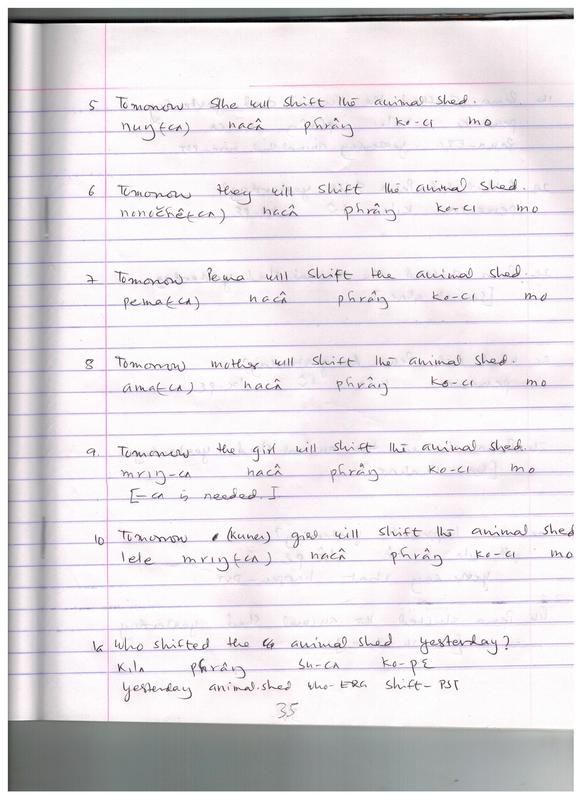 5 Tomorrow S/he will shift the animal shed.
nuŋ(-cʌ) nacâ phrâŋ ko-cı mo
6 Tomorrow they will shift the animal shed.
phrâŋ ko-cı mo
7 Tomorrow Pema will shift the animal shed.
pema(-cʌ) nacâ phrâŋ ko-cı mo
8 Tomorrow mother will shift the animal shed.
ama(-cʌ) nacâ phrâŋ ko-cı mo
9. Tomorrow the girl will shift the animal shed.
mrıŋ-cʌ nacâ phrâŋ ko-cı mo
[-cʌ is needed.]
10 Tomorrow girl will shift the animal shed
lele mrıŋ(-cʌ) nacâ phrâŋ ko-cı mo
Who shifted the animal shed yesterday?
phrâŋ su-cʌ ko-pɛ
yesterday animal.shed who-ERG shift-PST
35